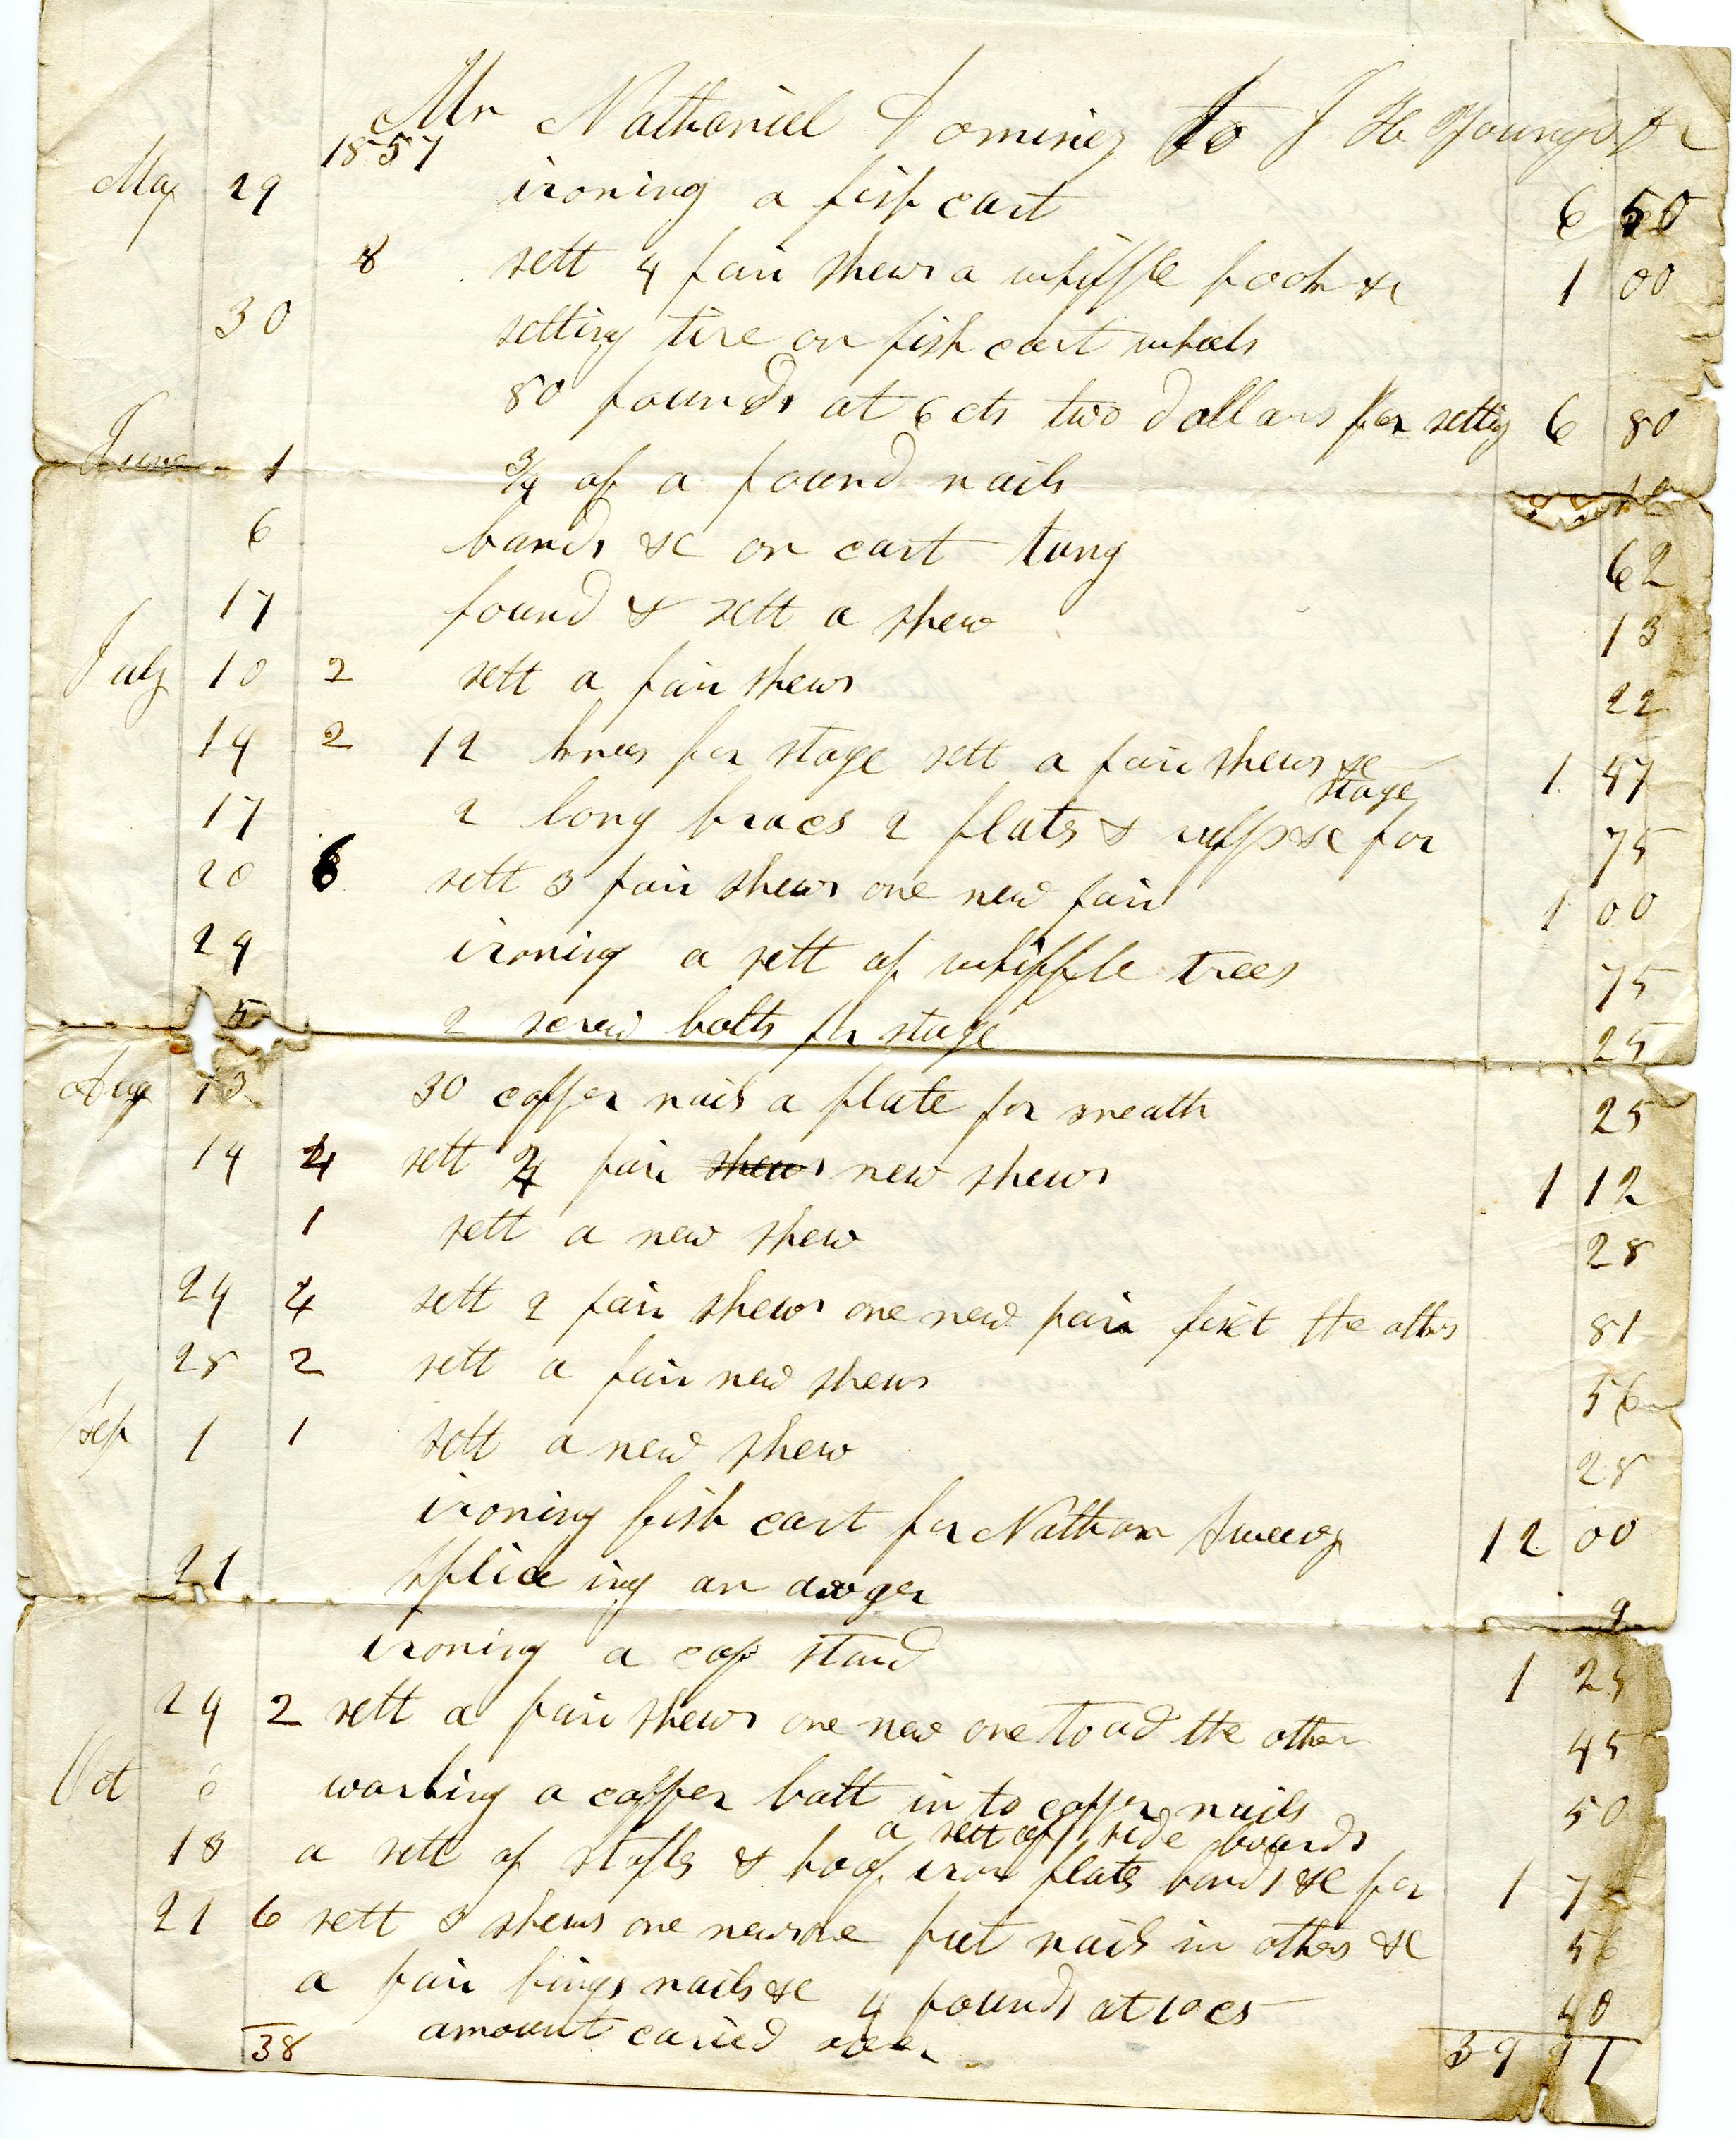 Mr Nathaniel Dominey To J H Youngs Dr
1857
May 29 ironing a fish cart 6 50
8 sett 4 pair shews a whiffle hook &c 1 00
30 setting tire on fish cart wheels
80 pounds at 6 cts two dollars for settig 6 80
June 1 3/4 of a pound nails
6 bands &c on cart tung 62
17 found & sett a shew 13
July 10 2 sett a pair shews 22
14 2 12 knees for stage sett a pair shews &c 1 47
stage
17 2 long braces 2 plats & &c for 75
20 6 sett 3 pair shews one new pair 1 00
24 ironing a sett of whiffle trees 75
5 2 screw bolts for stage 25
Aug 13 30 copper nails a plate for sneath 25
14 4 sett 4 pair shews new shews 1 12
1 sett a new shew 28
24 4 sett 2 pair shews one new pair fixt the others 81
28 2 sett a pair new shews 56
Sep 1 1 sett a new shew 28
ironing fish cart for Nathan 12 00
21 spliceing an awger 9
ironing a cap stand 1 25
24 2 sett a pair shews one new one toad the other 45
Oct 6 working a copper bolt in to copper nails 50
a sett of side boards
13 a sett of stapls & hoop iron plats bands &c for 1 75
21 6 sett 3 shews one new one put nails in others &c 56
a pair hings nails &c 4 pounds at 10 cs 40
38 amount caried over 39 91